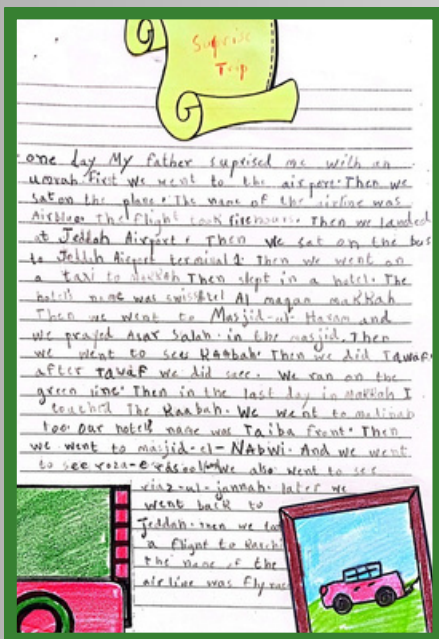 Suprise
Trip
one day My father suprised me with an
umrah first we went to the airport. Then we
sat on the plane. The name of the airline was
Airblue. The flight took five hours. Then we landed
at Jeddah Airport. Then we sat on the bus
to Jeddah Airport terminal 1. Then we went on
a taxi to makkah Then slept in a hotel. The
hotels name was swissotel Al maqam makkah
Then we went to Masjid-ul-Haram and
we prayed Asar Salah. in the masjid. Then
we went to sees Kaabah. Then we did Tawaf.
after Tawaf we did saee. We ran on the
green line. Then in the last day in Makkah I
touched The Kaabah. We went to madinah
too. our hotels name was Taiba front. Then
we went to masjid-el-NAbwi. And we went
to see roza-e-rasool we also went to see
riaz-ul-jannah. later we
went back to
Jeddah. then we
a flight to Karachi
the name of the
airline was fly